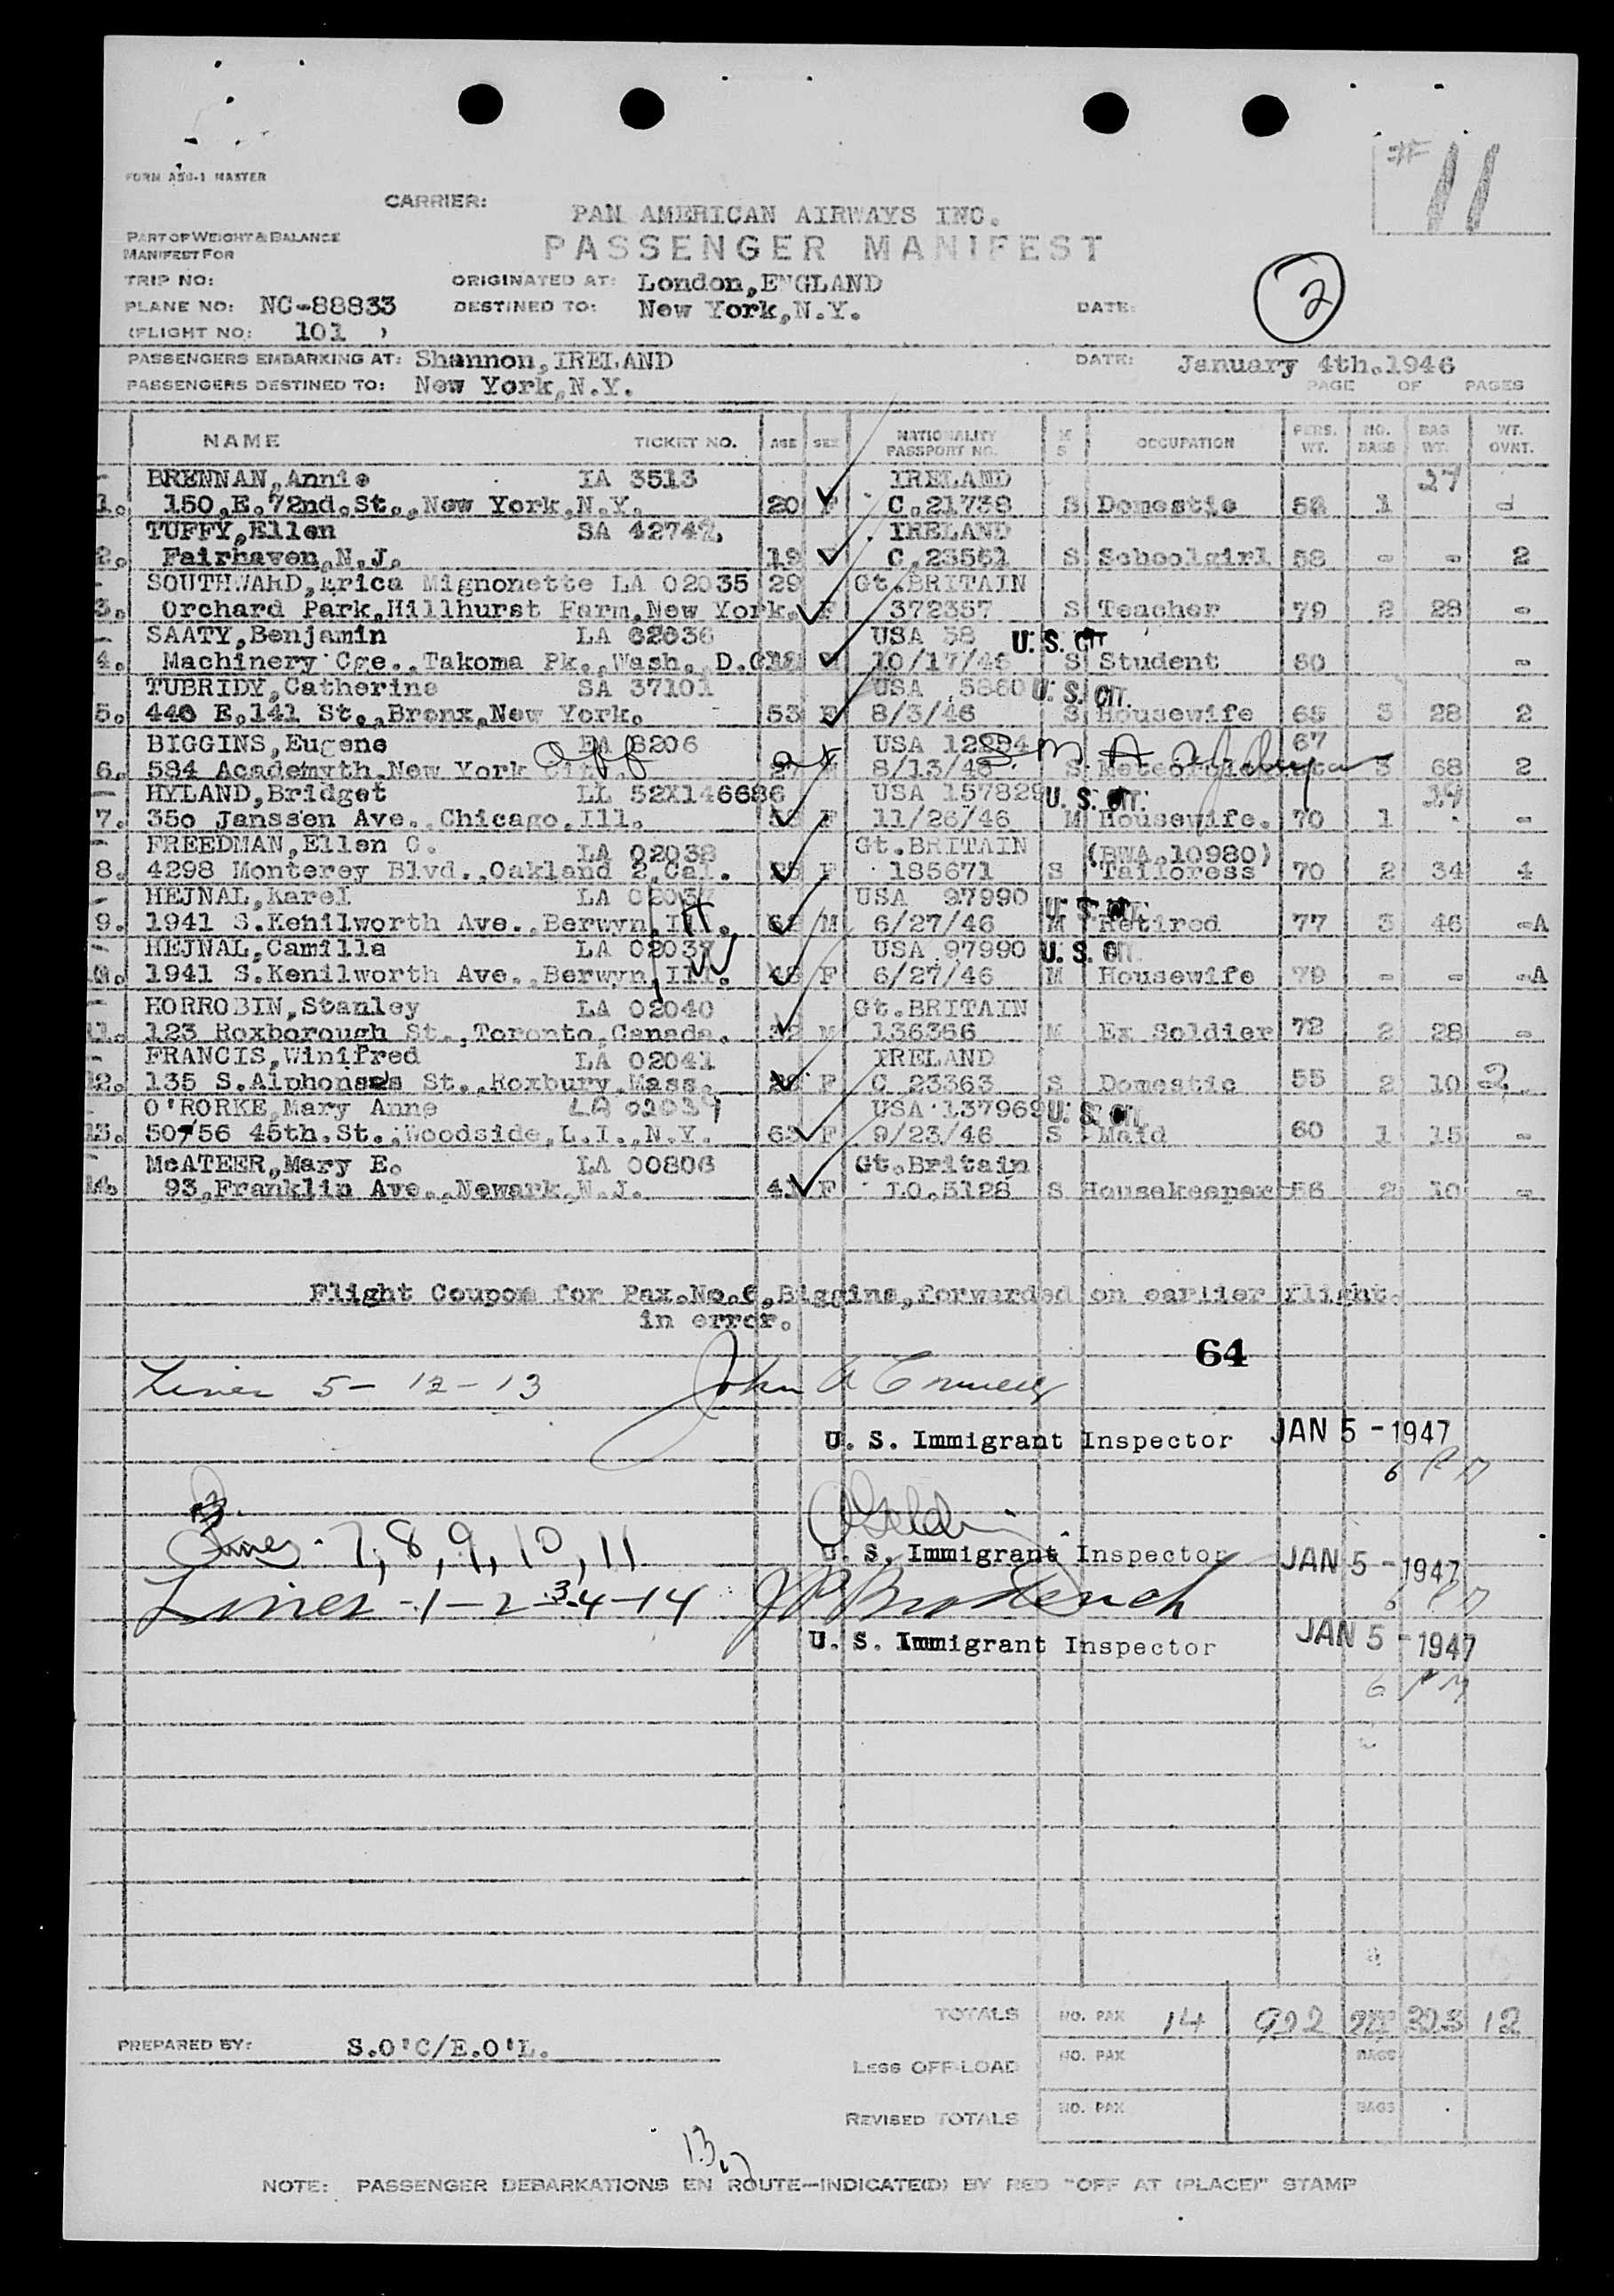 #11
FORM ASU-1 MASTER
CARRIER: PAN AMERICAN AIRWAYS INC.
PART OF WEIGHT & BALANCE
MANIFEST FOR
PASSENGER MANIFEST
TRIP NO: ORIGINATED AT: London, ENGLAND
PLANE NO: NC-88833 DESTINED TO: New York, N.Y. DATE: 2
(FLIGHT NO: 101 )
PASSENGERS EMBARKING AT: Shannon, IRELAND DATE: January 4th.1946
PASSENGERS DESTINED TO: New York, N.Y. PAGE OF PAGES
NAME TICKET NO. AGE SEX NATIONALITY PASSPORT NO. M S OCCUPATION PERS. WT. NO. BAGS BAG WT. WT. OVNT.
BRENNAN, Annie IA 3513 IRELAND 27
1. 150, E. 72nd. St., New York, N.Y. 20 F C.21738 S Domestic 52 1
TUFFY, Ellen SA 42742 IRELAND
2. Fairhaven, N.J. 19 F C.23561 S Schoolgirl 58 - - 2
SOUTHWARD, Erica Mignonette LA 02035 29 Gt.BRITAIN
3. Orchard Park, Hillhurst Farm, New York. F 372357 S Teacher 79 2 28 -
SAATY, Benjamin LA 02036 USA 38 U. S. CIT
4. Machinery Cge., Takoma Pk., Wash. D.C. M 10/17/46 S Student 60 -
TUBRIDY, Catherine SA 37101 USA 5860 U. S. CIT.
5. 440 E.141 St., Bronx, New York. 53 F 8/3/46 S Housewife 65 3 28 2
BIGGINS, Eugene EA 8206 off at USA 67
6. 584 Academyth. New York City. 27 M 8/13/46 S 3 68 2
HYLAND, Bridget LL 52X146686 USA 157829 U. S. CIT. 29
7. 350 Janssen Ave., Chicago, Ill. F 11/26/46 M Housewife. 70 1 -
FREEDMAN, Ellen C. LA 02038 Gt.BRITAIN (BWA.10980)
8. 4298 Monterey Blvd., Oakland 2, Cal. F 185671 S Tailoress 70 2 34 4
HEJNAL, Karel LA 02037 USA 97990 U. S. CIT.
9. 1941 S.Kenilworth Ave., Berwyn, Ill. M 6/27/46 M Retired 77 3 46 -A
HEJNAL, Camilla LA 02037 USA 97990 U. S. CIT.
10. 1941 S.Kenilworth Ave., Berwyn, Ill. F 6/27/46 M Housewife 79 - - -A
HORROBIN, Stanley LA 02040 Gt.BRITAIN
11. 123 Roxborough St., Toronto, Canada. 32 M 136366 M Ex Soldier 72 2 28 -
FRANCIS, Winifred LA 02041 IRELAND
12. 135 S.Alphonses St., Roxbury, Mass. F C 23363 S Domestic 55 2 10 2
O'RORKE, Mary Anne LA 02039 USA 137969 U. S. CIT.
13. 50756 45th.St., Woodside, L.I., N.Y. 63 F 9/23/46 S Maid 60 1 15 -
McATEER, Mary E. LA 00806 Gt.Britain
14. 93, Franklin Ave., Newark, N.J. 41 F LO.5128 S Housekeeper 56 2 10 -
Flight Coupom for Pax.No.6, Biggins, forwarded on earlier flight.
in error.
64
Lines 5 - 12 - 13
U. S. Immigrant Inspector JAN 5 - 1947
6 PM
Lines - 7, 8, 9, 10, 11
U. S. Immigrant Inspector JAN 5 - 1947
6 PM
Lines - 1 - 2 - 3 - 4 - 14
U. S. Immigrant Inspector JAN 5 - 1947
6 PM
TOTALS NO. PAX 14 902 22 323 12
PREPARED BY: S.O'C/E.O'L.
LESS OFF-LOAD NO. PAX BAGS
REVISED TOTALS NO. PAX BAGS
13
NOTE: PASSENGER DEBARKATIONS EN ROUTE—INDICATE(D) BY RED "OFF AT (PLACE)" STAMP